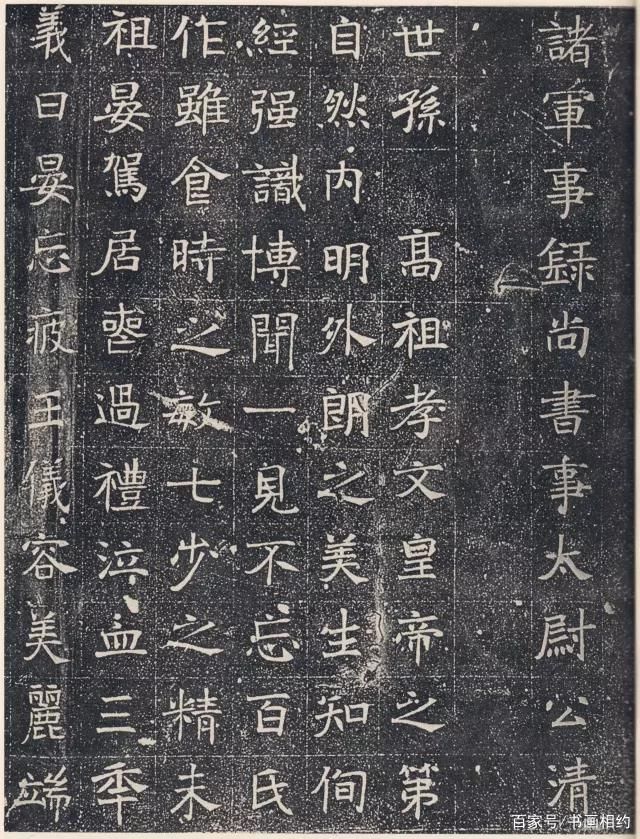 諸軍事録尚書事太尉公清
世孫 高祖孝文皇帝之第
自然内明外朗之美生知侚
經强識博聞一見不忘百氏
作雖食時之敏七少之精未
祖晏駕居喪過禮泣血三年
義日晏忘疲王儀容美麗端
百家号/书画相约